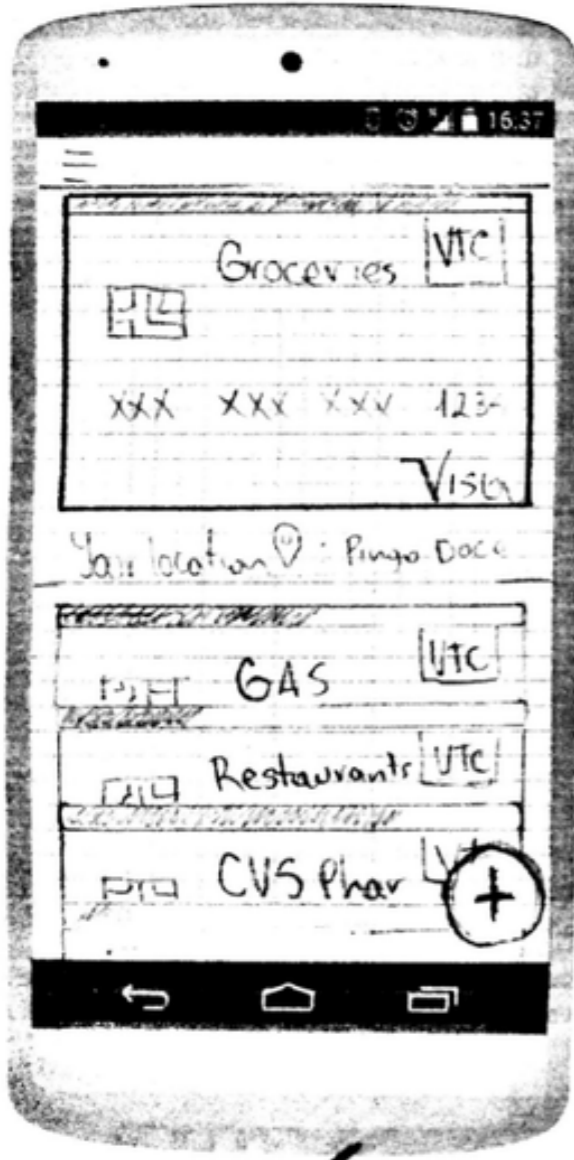 16:37
Groceries VTC
XXX XXX XXX 123-
Visa
Your location : Pingo Doce
GAS VTC
Restaurants VTC
CVS Phar
+